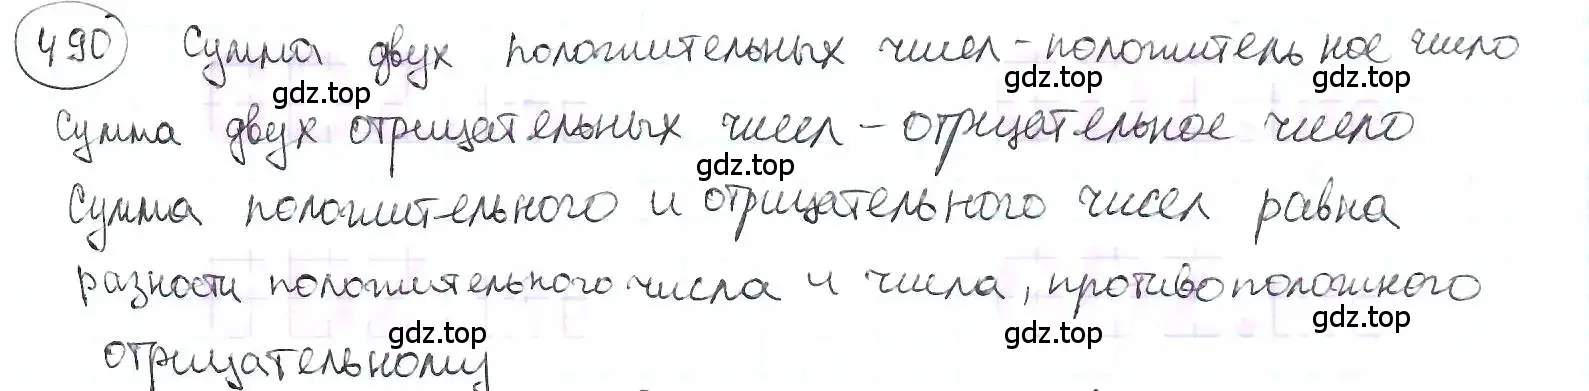 490 Сумма двух положительных чисел - положительное число
gdz.top gdz.top gdz.top
Сумма двух отрицательных чисел - отрицательное число
gdz.top
Сумма положительного и отрицательного чисел равна
разности положительного числа и числа, противоположного
gdz.top gdz.top gdz.top
отрицательному